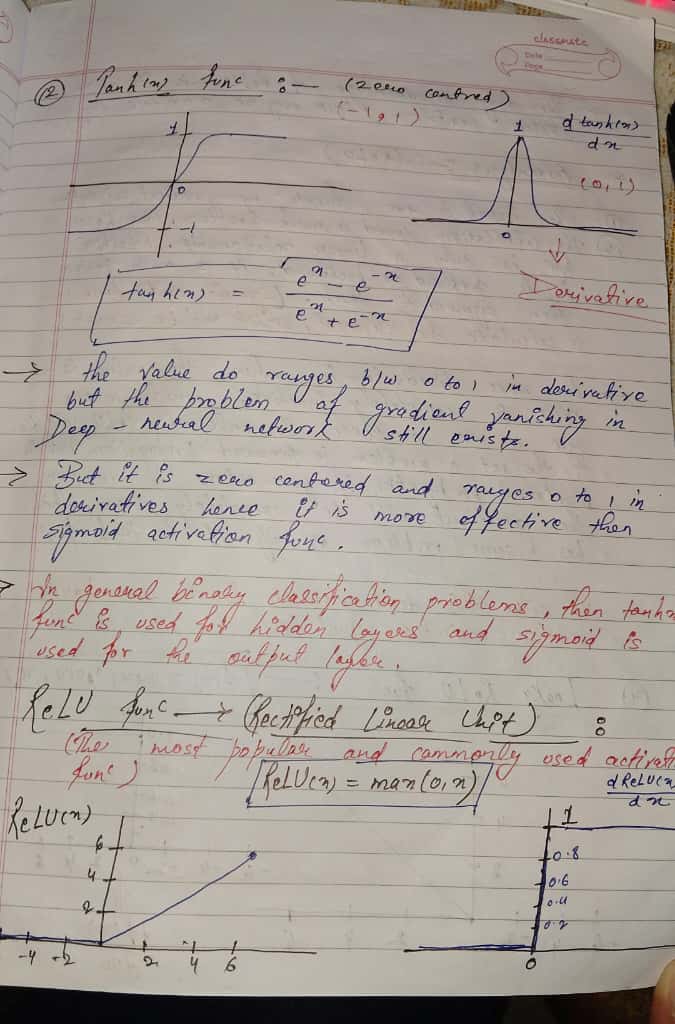 classmate
Date
Page
② Tanh(x) func :— (zero centred)
(-1, 1)
1
0
-1
1
d tanh(x)
dx
(0, 1)
0
Derivative
tanh(x) = e^x - e^-x
e^x + e^-x
→ the value do ranges b/w 0 to 1 in derivative
but the problem of gradient vanishing in
Deep - neural network still exists.
→ But it is zero centered and ranges 0 to 1 in
derivatives hence it is more effective then
sigmoid activation func.
→ In general binary classification problems, then tanh
func is used for hidden layers and sigmoid is
used for the output layer.
ReLU func → (Rectified Linear Unit) :
(The most popular and commonly used activati
func)
ReLU(x) = max(0, x)
d ReLU(x
dx
ReLU(x)
6
4
2
-4 -2 2 4 6
1
0.8
0.6
0.4
0.2
0